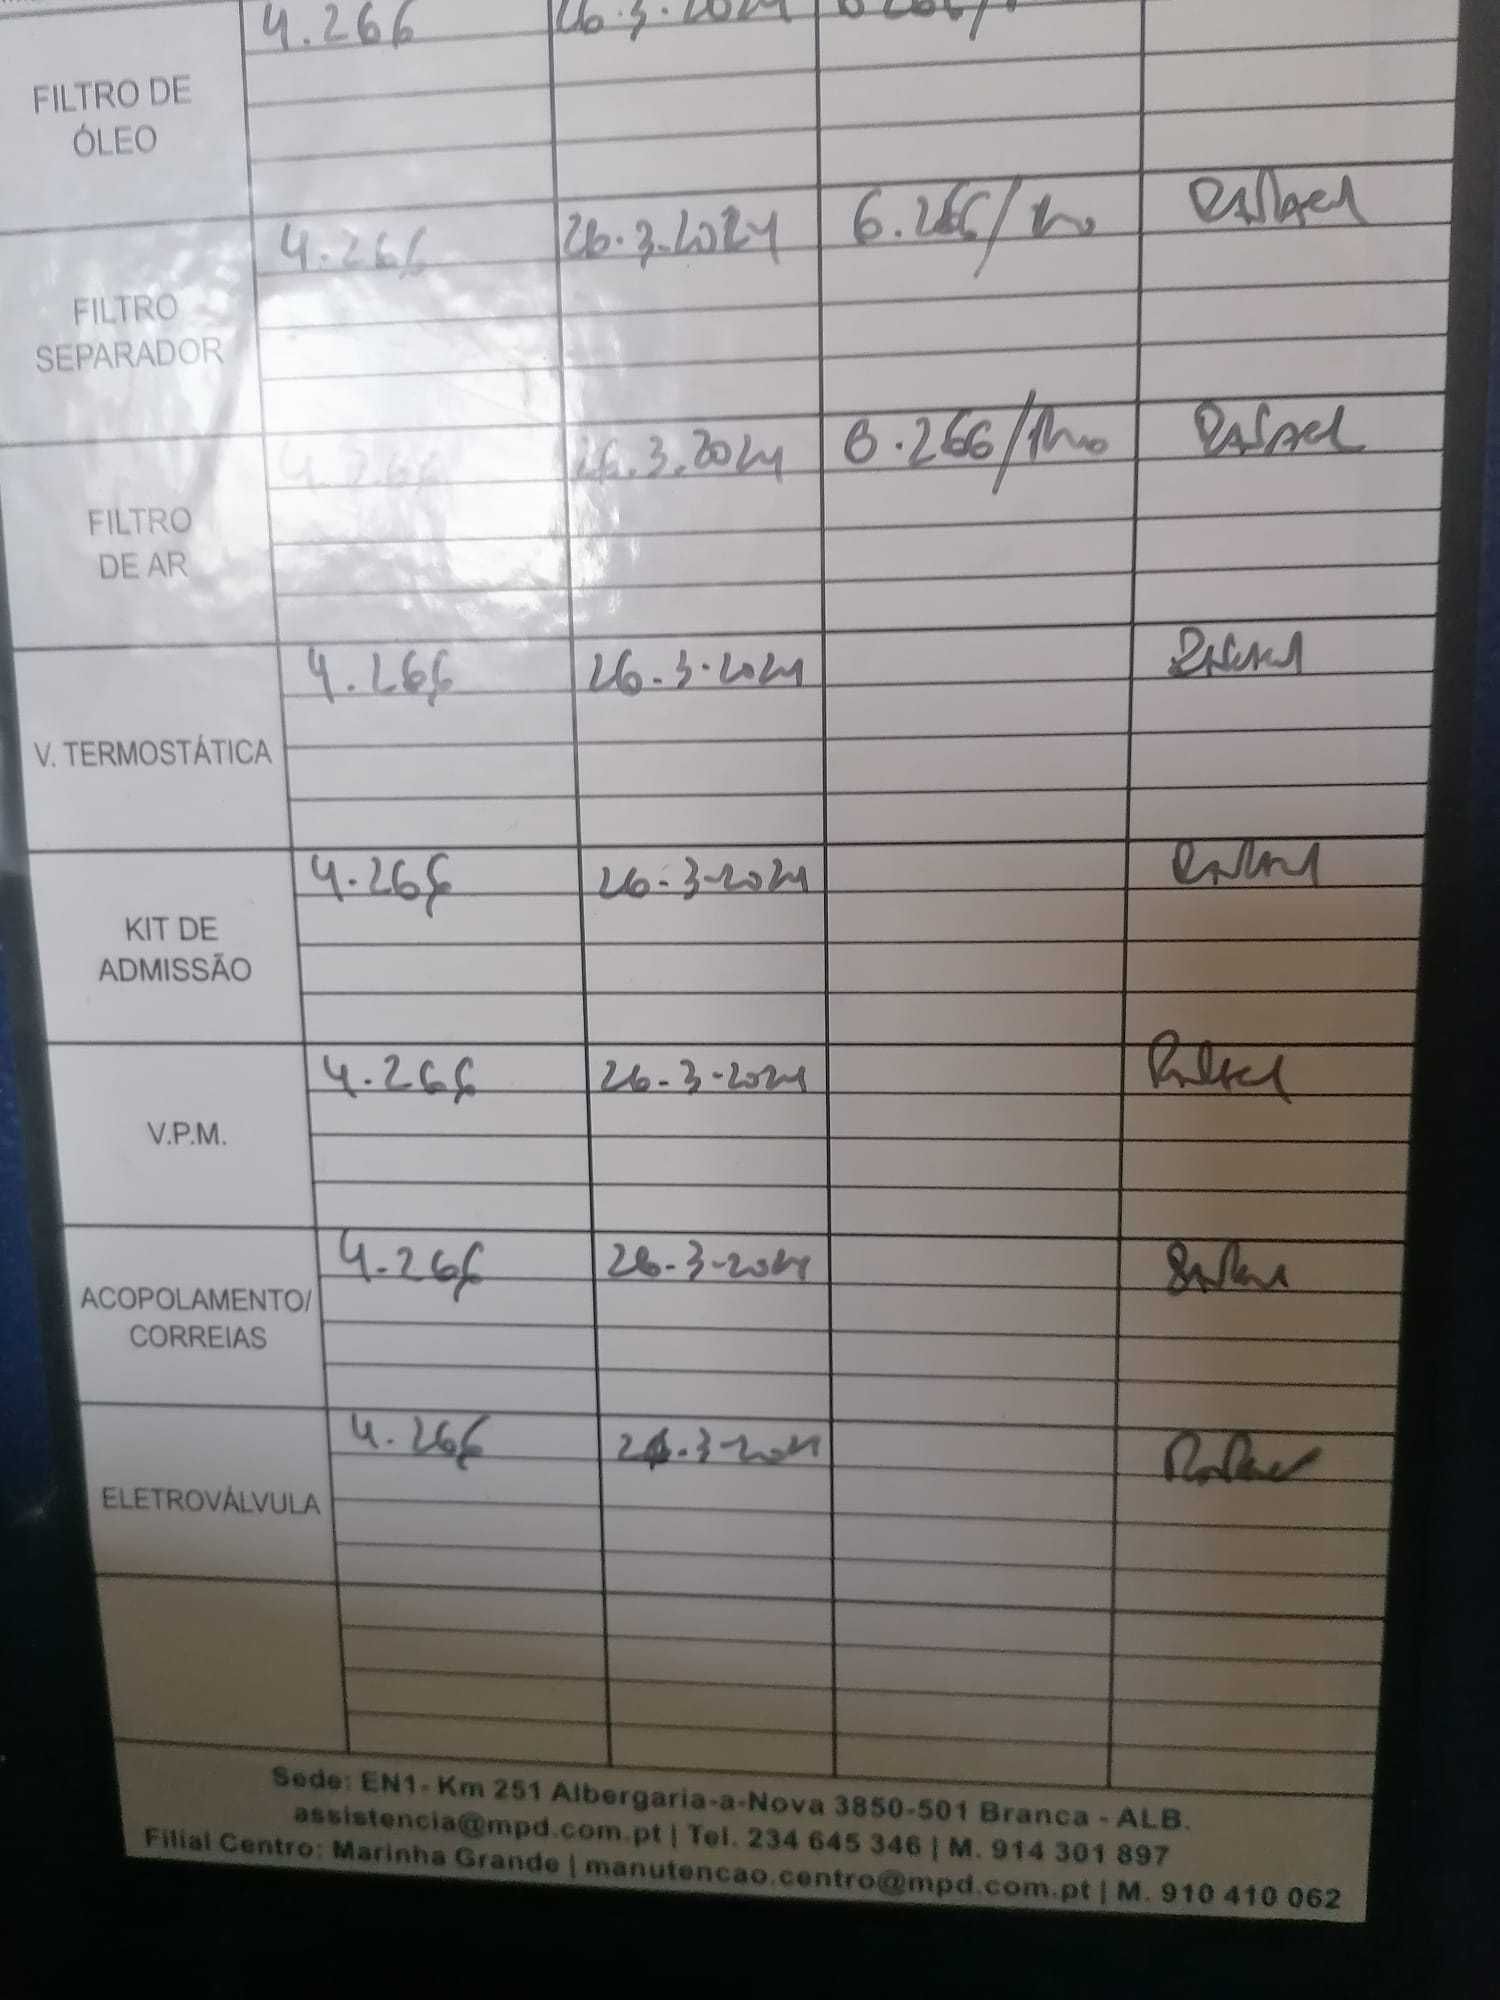 4.266 26.3.2021
FILTRO DE
ÓLEO
4.266 26.3.2021 6.266/1 Rafael
FILTRO
SEPARADOR
4.266 26.3.2021 6.266/1 Rafael
FILTRO
DE AR
4.266 26-3-2021 Rafael
V. TERMOSTÁTICA
4.266 26-3-2021 Rafael
KIT DE
ADMISSÃO
4.266 26-3-2021 Rafael
V.P.M.
4.266 26-3-2021 Rafael
ACOPOLAMENTO/
CORREIAS
4.266 26.3-2021 Rafael
ELETROVÁLVULA
Sede: EN1- Km 251 Albergaria-a-Nova 3850-501 Branca - ALB.
assistencia@mpd.com.pt | Tel. 234 645 346 | M. 914 301 897
Filial Centro: Marinha Grande | manutencao.centro@mpd.com.pt | M. 910 410 062